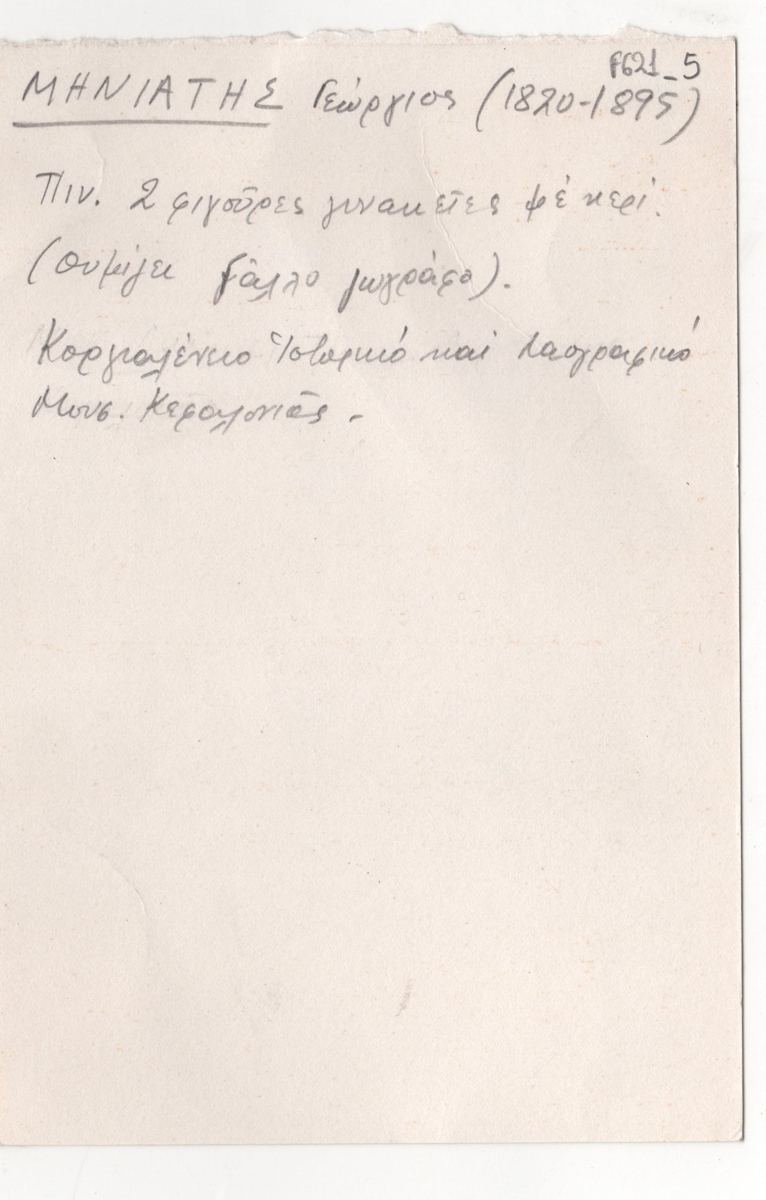 F621_5
ΜΗΝΙΑΤΗΣ Γεώργιος (1820-1895)
Πιν. 2 φιγοῦρες γυναικεῖες μέ κερί.
(Θυμίζει Γάλλο ζωγράφο).
Κοργιαλένειο Ἱστορικό καί Λαογραφικό
Μουσ. Κεφαλονιᾶς -